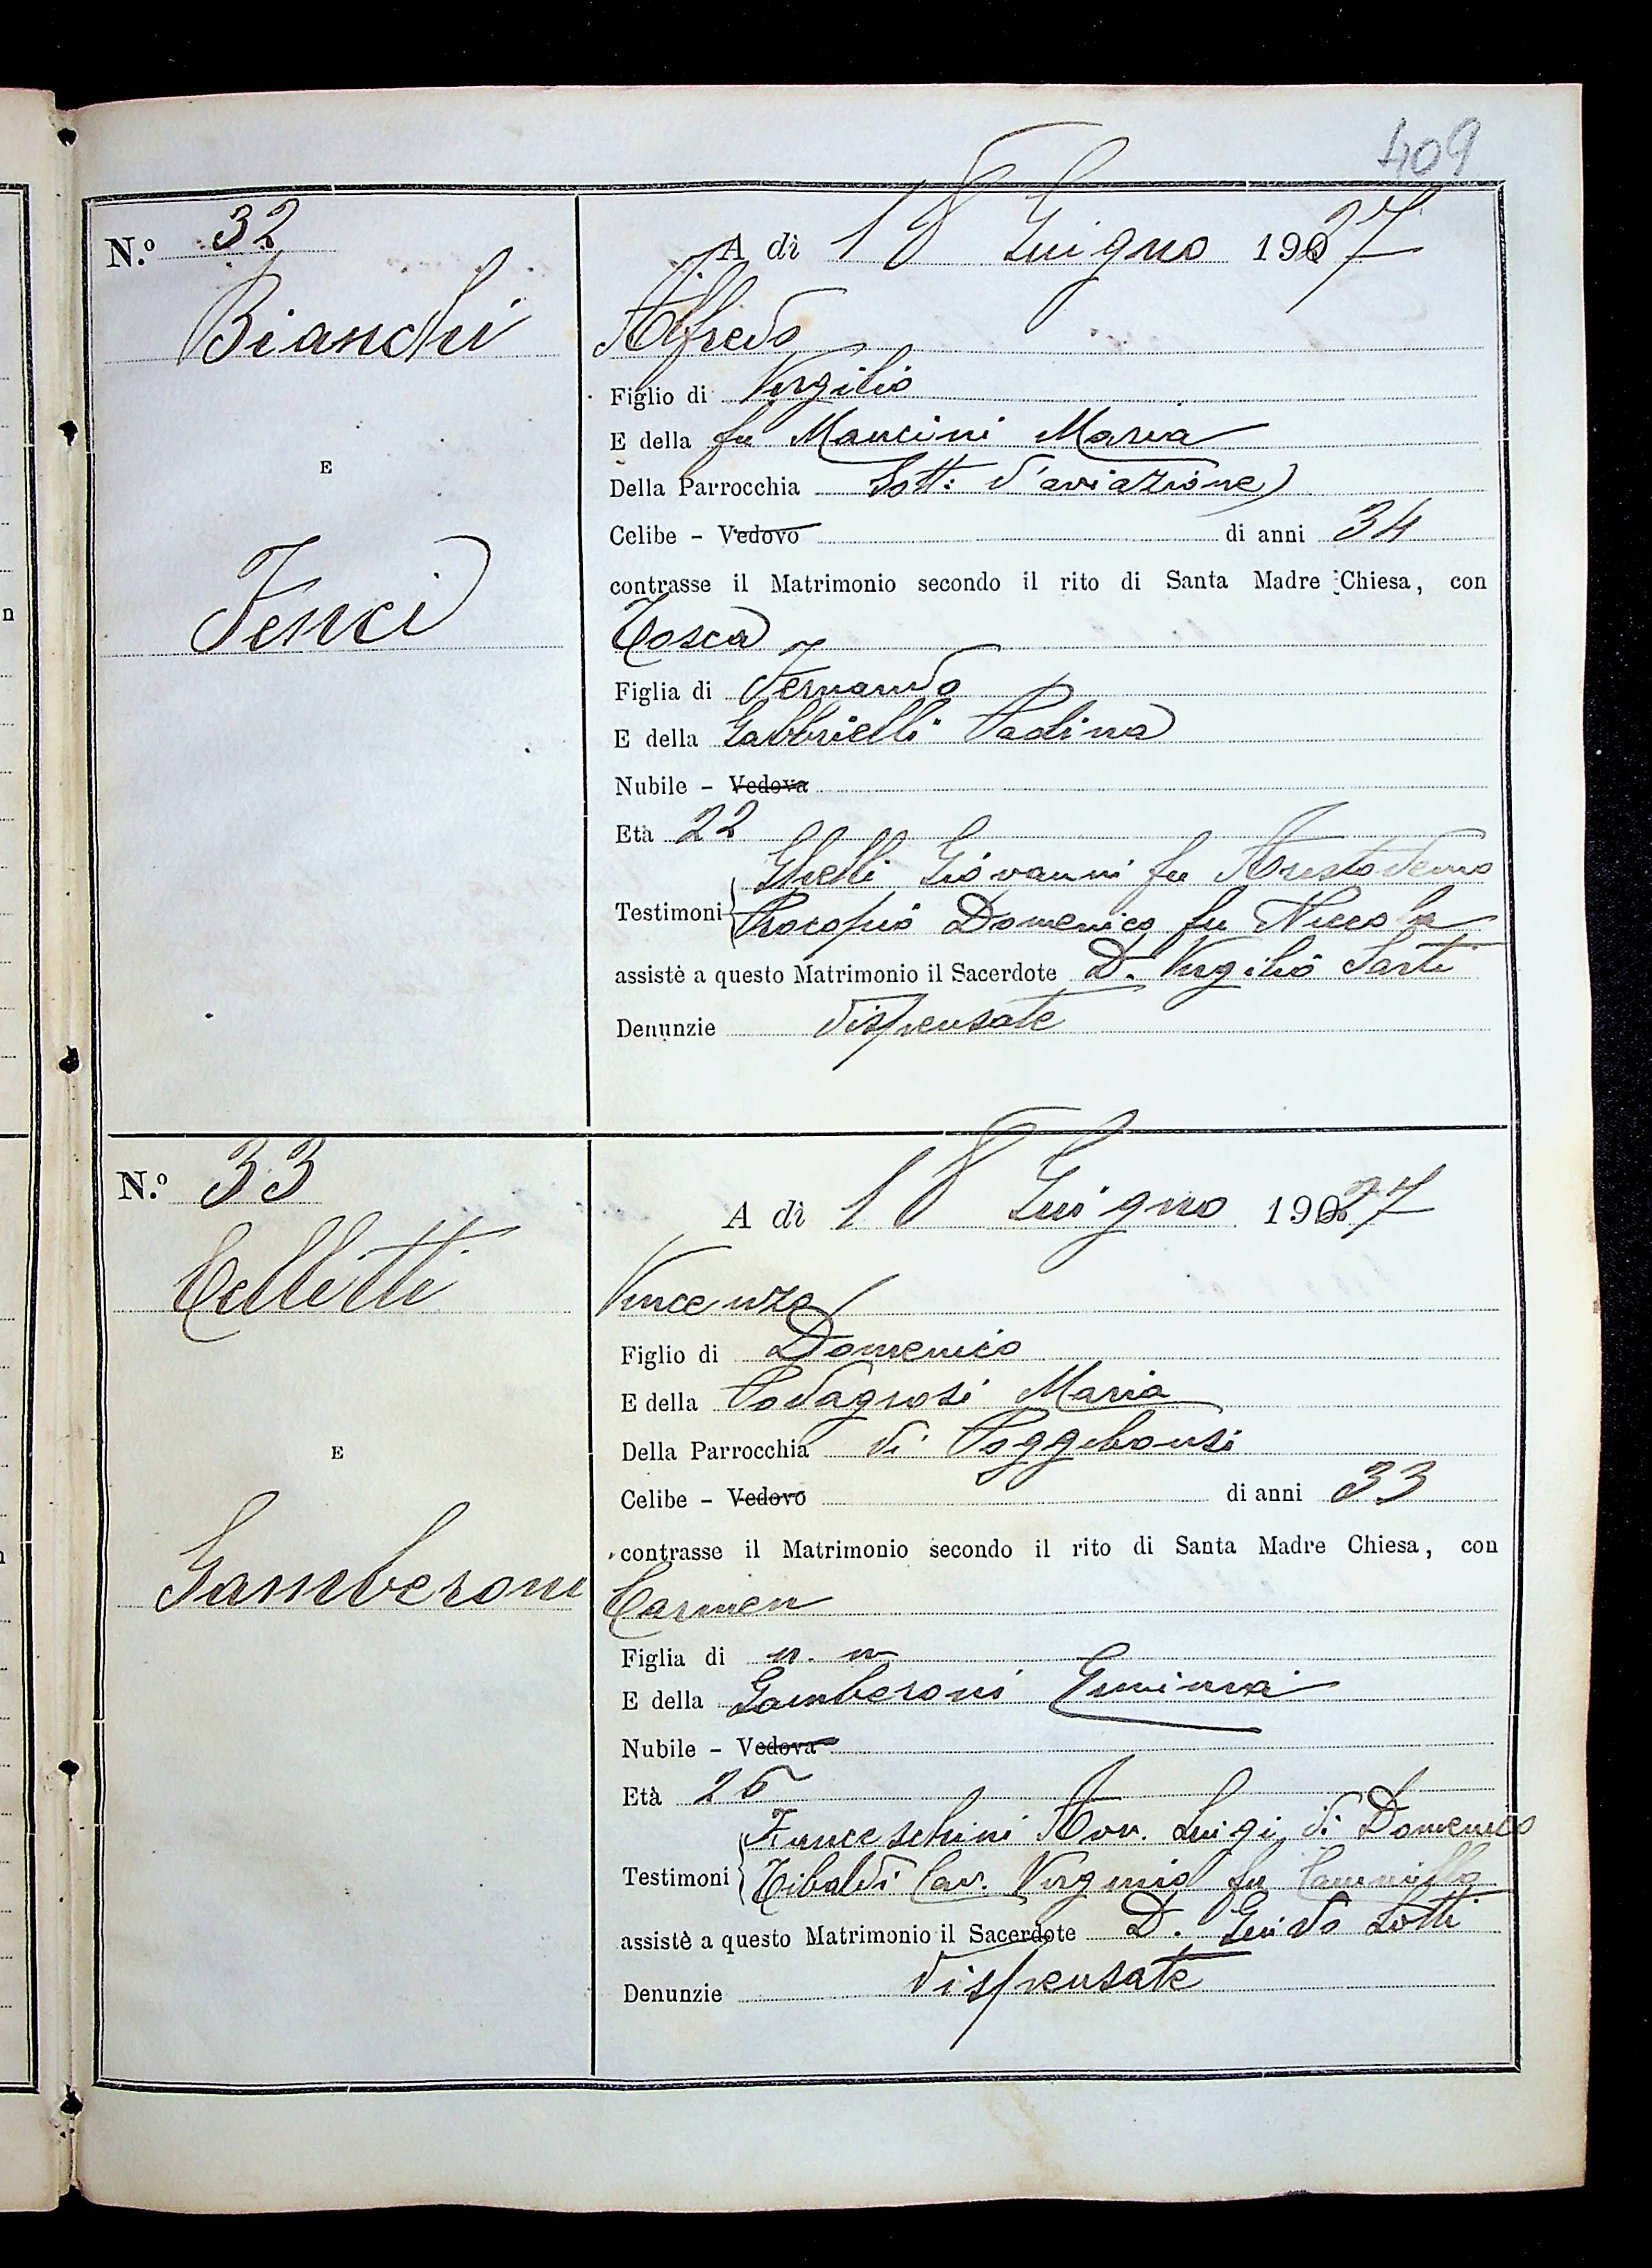 409
N.º 32
A dì 18 Giugno 1927
Bianchi
Alfredo
Figlio di Virgilio
E della fu Mancini Maria
E
Della Parrocchia Sott: d'aviazione
Celibe - Vedovo di anni 34
contrasse il Matrimonio secondo il rito di Santa Madre Chiesa, con
Fenci
Tosca
Figlia di Fernando
E della Gabbrielli Paolina
Nubile - Vedova
Età 22
Ghelli Giovanni fu Aristodemo
Testimoni
Procopio Domenico fu Niccola
assistè a questo Matrimonio il Sacerdote D. Virgilio Sarti
Denunzie dispensate
N.º 33
A dì 18 Giugno 1927
Celletti
Vincenzo
Figlio di Domenico
E della Podagrosi Maria
Della Parrocchia di Poggibonsi
E
Celibe - Vedovo di anni 33
contrasse il Matrimonio secondo il rito di Santa Madre Chiesa, con
Gamberoni
Carmen
Figlia di n. n
E della Gamberoni Gemima
Nubile - Vedova
Età 25
Franceschini Avv. Luigi di Domenico
Testimoni
Tibaldi Cav. Virginio fu Cammillo
assistè a questo Matrimonio il Sacerdote D. Guido Lotti
Denunzie dispensate